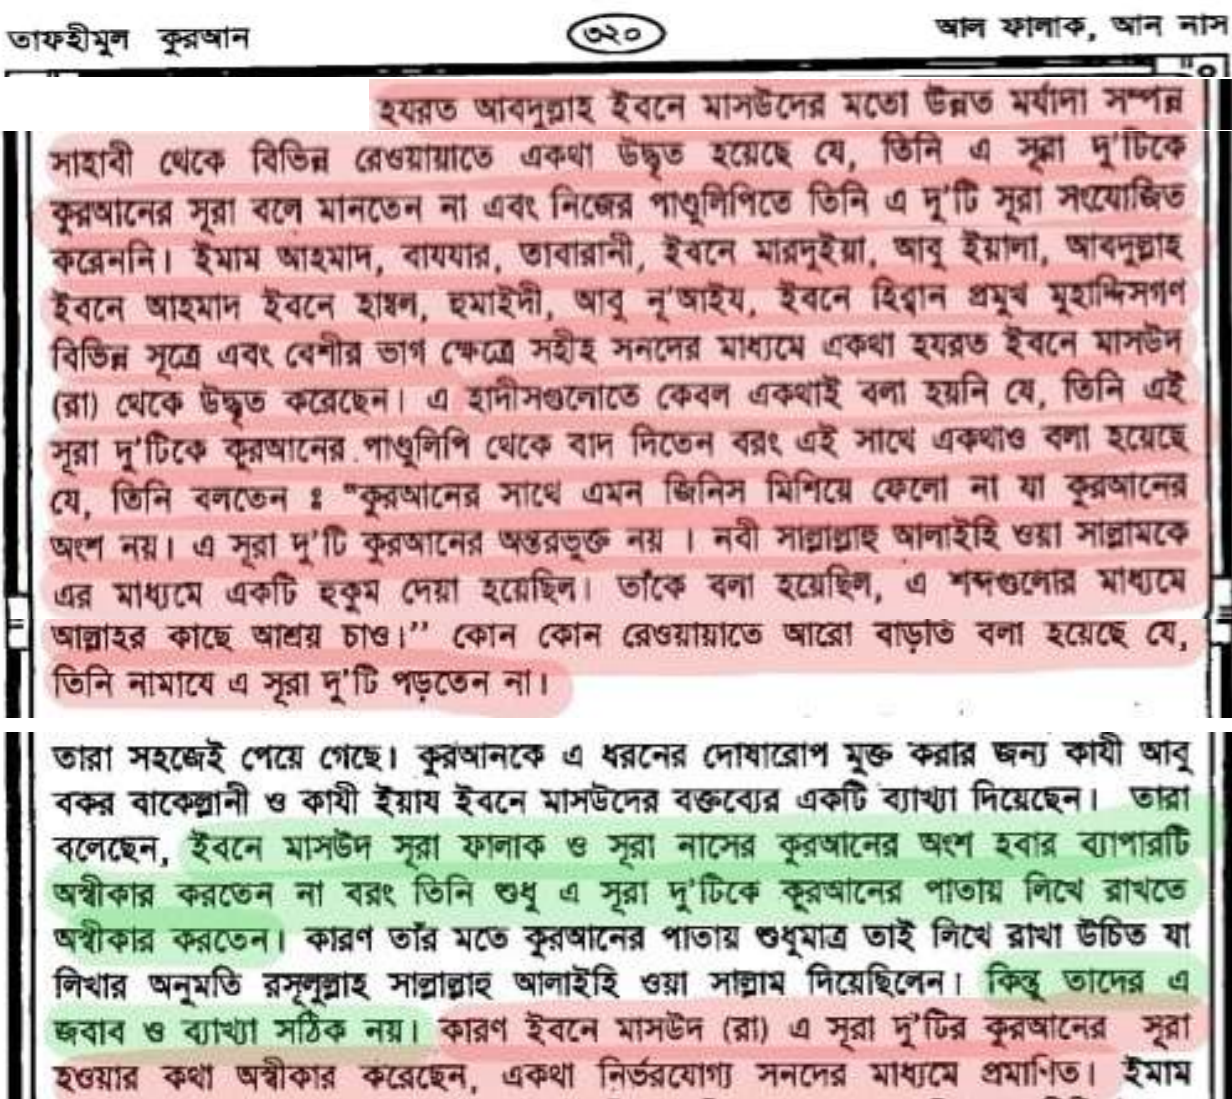 তাফহীমুল কুরআন
৩২০
আল ফালাক, আন নাস
হযরত আবদুল্লাহ ইবনে মাসউদের মতো উন্নত মর্যাদা সম্পন্ন
সাহাবী থেকে বিভিন্ন রেওয়ায়াতে একথা উদ্ধৃত হয়েছে যে, তিনি এ সূরা দু'টিকে
কুরআনের সূরা বলে মানতেন না এবং নিজের পাণ্ডুলিপিতে তিনি এ দু'টি সূরা সংযোজিত
করেননি। ইমাম আহমাদ, বাযযার, তাবারানী, ইবনে মারদুইয়া, আবু ইয়ালা, আবদুল্লাহ
ইবনে আহমাদ ইবনে হাম্বল, হুমাইদী, আবু নু'আইয, ইবনে হিব্বান প্রমুখ মুহাদ্দিসগণ
বিভিন্ন সূত্রে এবং বেশীর ভাগ ক্ষেত্রে সহীহ সনদের মাধ্যমে একথা হযরত ইবনে মাসউদ
(রা) থেকে উদ্ধৃত করেছেন। এ হাদীসগুলোতে কেবল একথাই বলা হয়নি যে, তিনি এই
সূরা দু'টিকে কুরআনের পাণ্ডুলিপি থেকে বাদ দিতেন বরং এই সাথে একথাও বলা হয়েছে
যে, তিনি বলতেন ঃ "কুরআনের সাথে এমন জিনিস মিশিয়ে ফেলো না যা কুরআনের
অংশ নয়। এ সূরা দু'টি কুরআনের অন্তরভুক্ত নয় । নবী সাল্লাল্লাহু আলাইহি ওয়া সাল্লামকে
এর মাধ্যমে একটি হুকুম দেয়া হয়েছিল। তাঁকে বলা হয়েছিল, এ শব্দগুলোর মাধ্যমে
আল্লাহর কাছে আশ্রয় চাও।'' কোন কোন রেওয়ায়াতে আরো বাড়তি বলা হয়েছে যে,
তিনি নামাযে এ সূরা দু'টি পড়তেন না।
তারা সহজেই পেয়ে গেছে। কুরআনকে এ ধরনের দোষারোপ মুক্ত করার জন্য কাযী আবু
বকর বাকেল্লানী ও কাযী ইয়ায ইবনে মাসউদের বক্তব্যের একটি ব্যাখ্যা দিয়েছেন। তারা
বলেছেন, ইবনে মাসউদ সূরা ফালাক ও সূরা নাসের কুরআনের অংশ হবার ব্যাপারটি
অস্বীকার করতেন না বরং তিনি শুধু এ সূরা দু'টিকে কুরআনের পাতায় লিখে রাখতে
অস্বীকার করতেন। কারণ তাঁর মতে কুরআনের পাতায় শুধুমাত্র তাই লিখে রাখা উচিত যা
লিখার অনুমতি রসূলুল্লাহ সাল্লাল্লাহু আলাইহি ওয়া সাল্লাম দিয়েছিলেন। কিন্তু তাদের এ
জবাব ও ব্যাখ্যা সঠিক নয়। কারণ ইবনে মাসউদ (রা) এ সূরা দু'টির কুরআনের সূরা
হওয়ার কথা অস্বীকার করেছেন, একথা নির্ভরযোগ্য সনদের মাধ্যমে প্রমাণিত। ইমাম